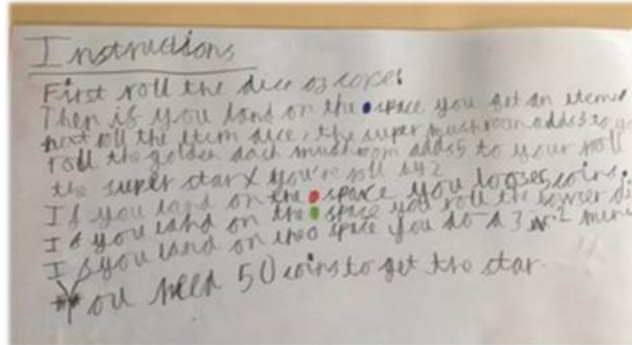 Instructions
First roll the dice of
Then if you land on the space you get an item
next roll the item dice, the super mushroom adds 3 to
roll the golden dash mushroom adds 5 to your roll
the super star X you're roll by 2
If you land on the space you looses coins.
If you land on the space you roll the bowser
If you land on the space you do a 3 2
You need 50 coins to get the star.